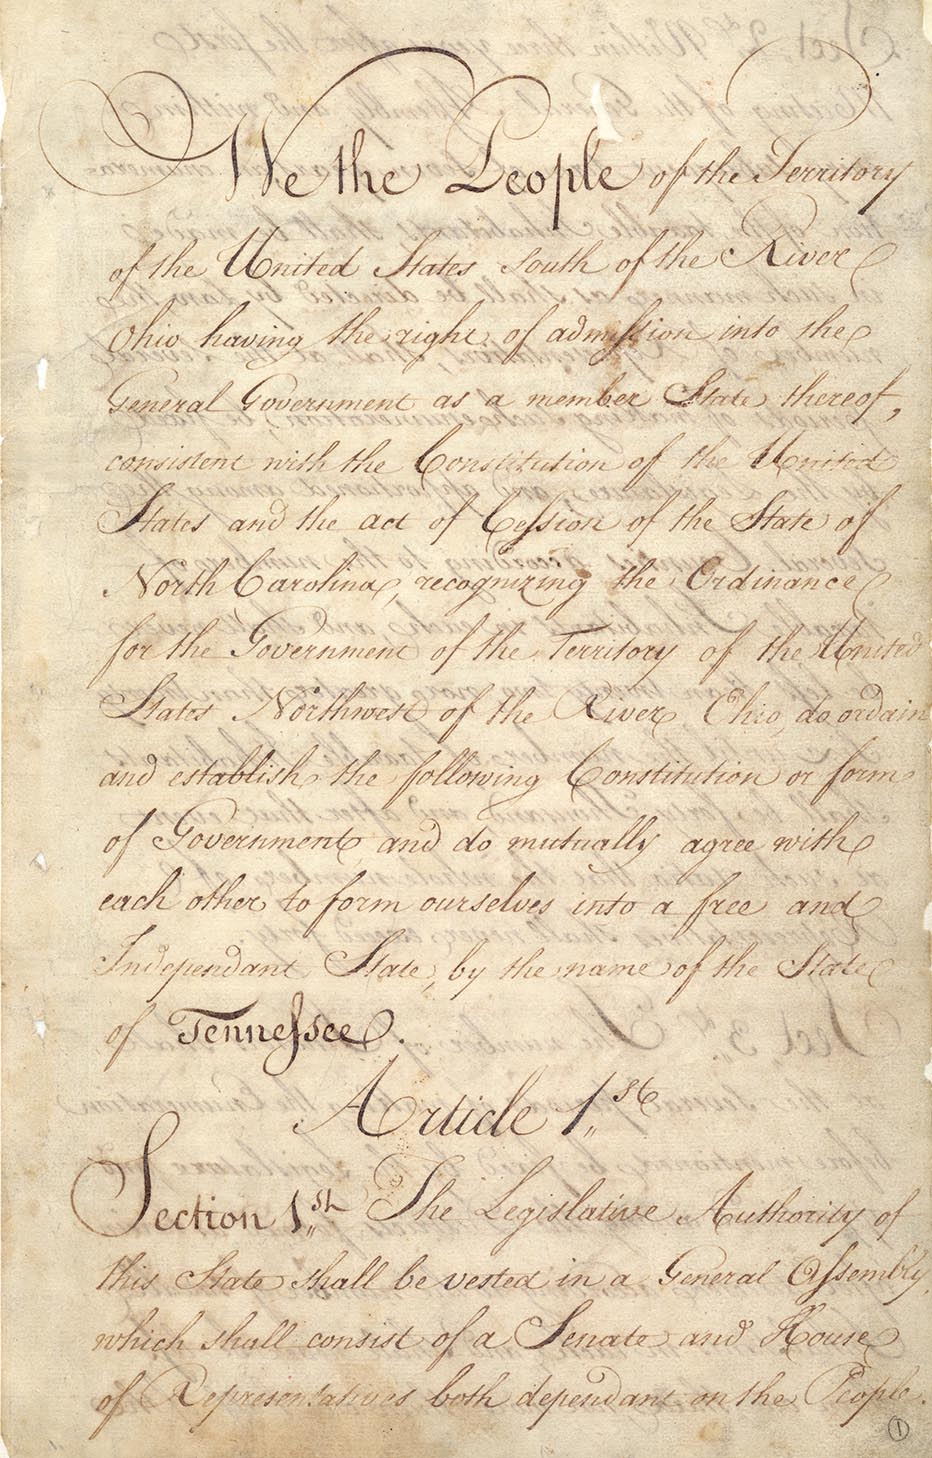 We the People of the Territory
of the United States south of the River
Ohio having the right of admission into the
General Government as a member State thereof,
consistent with the Constitution of the United
States and the act of Cession of the State of
North Carolina, recognizing the Ordinance
for the Government of the Territory of the United
States Northwest of the River Ohio, do ordain
and establish the following Constitution or form
of Government, and do mutually agree with
each other to form ourselves into a free and
Independant State, by the name of the State
of Tennessee.
Article 1st
Section 1st The Legislative Authority of
this State shall be vested in a General Assembly,
which shall consist of a Senate and House
of Representatives both dependant on the People.
1